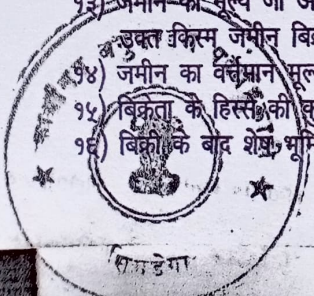 १३) जमीन का मूल्य जो अ
उक्त किस्म जमीन बिक्र
१४) जमीन का वर्त्तमान मूल
१५) बिक्रेता के हिस्से की क
१६) बिक्री के बाद शेष भूमि
सिमडेगा